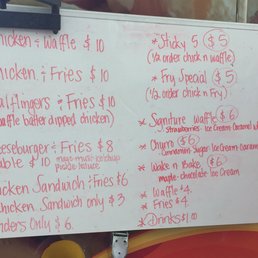 hicken & Waffle $10
hicken & Fries $10
Fingers & Fries $10
waffle batter dipped chicken)
eeseburger & Fries $8
able $10 mayo-mustard-ketchup
icken Sandwich & Fries $6
chicken Sandwich only $3
nders Only $6.
* Sticky 5 $5
(1/2 order chick n waffle)
* Fry Special $5
(1/2 order chick n Fry)
* Signiture waffle $6
Strawberries - Ice Cream - Caramel
* Churro $6
Cinnamon Sugar Ice Cream Caramel
* Wake n Bake $6
maple - chocolate Ice Cream
* Waffle $4
* Fries $4
* Drinks $1.00